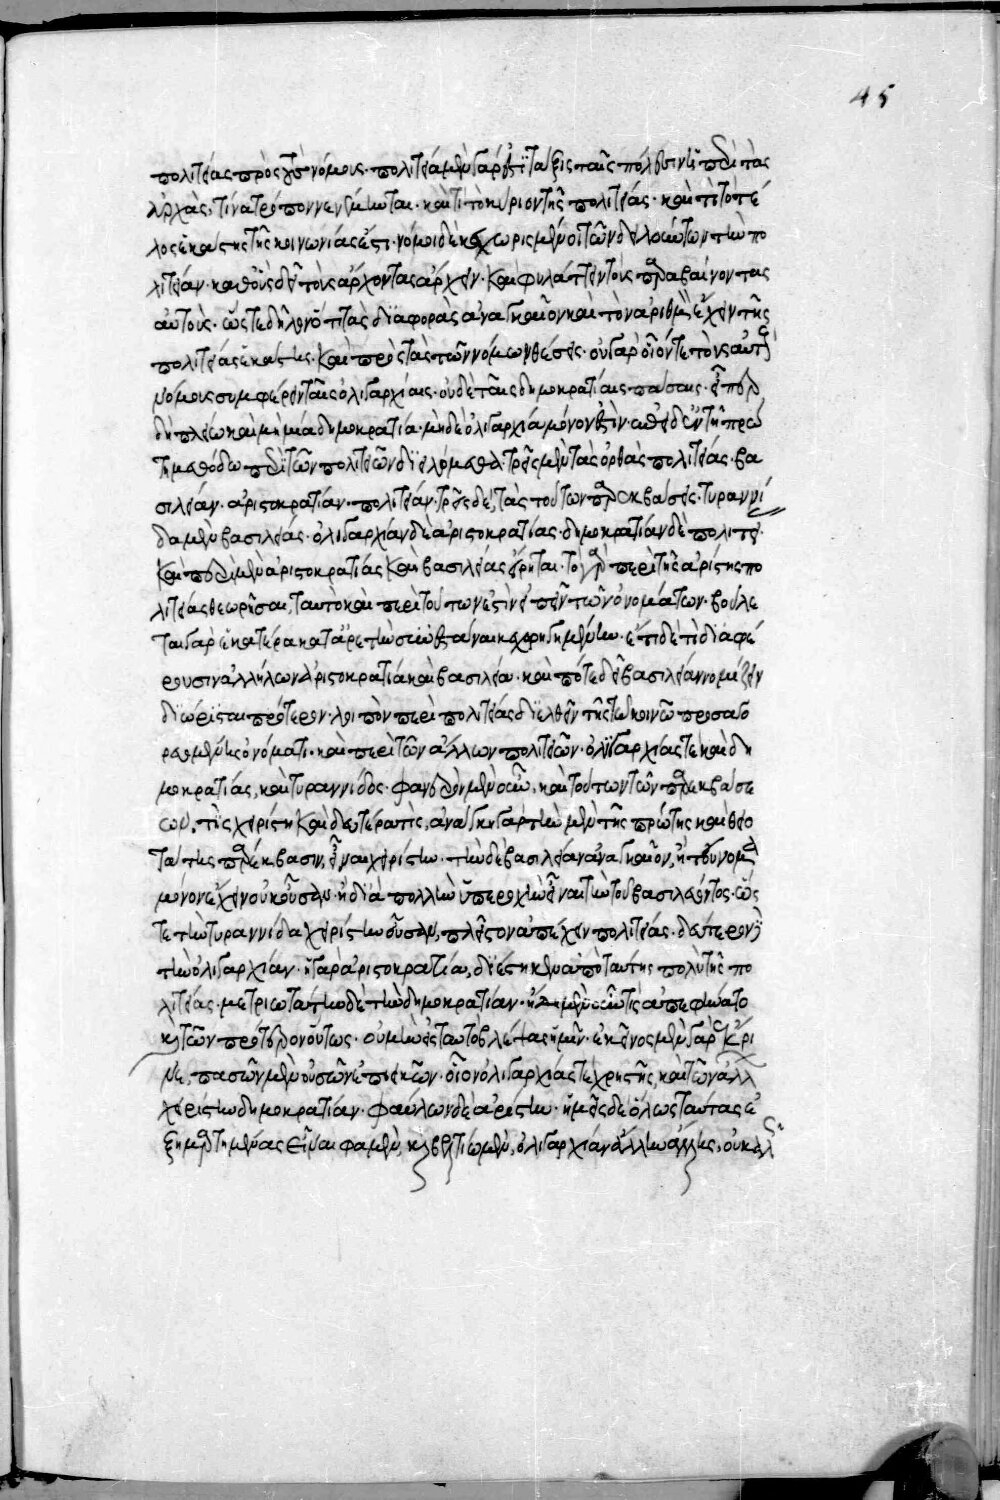 45
πολιτείας πρὸς τοὺς νόμους· πολιτεία μὲν γάρ ἐστι τάξις ταῖς πόλεσιν ἡ περὶ τὰς
ἀρχὰς, τίνα τρόπον νενέμωται· καὶ τί τὸ κύριον τῆς πολιτείας· καὶ τί τὸ τέ
λος ἑκάστης τῆς κοινωνίας ἐστι· νόμοι δὲ κεχωρισμένοι τῶν δηλούντων τὴν πο
λιτείαν· καθ' οὓς δεῖ τοὺς ἄρχοντας ἄρχειν· καὶ φυλάττειν τοὺς παραβαίνοντας
αὐτοὺς· ὥστε δῆλον ὅτι τὰς διαφορὰς ἀναγκαῖον καὶ τὸν ἀριθμὸν ἔχειν τῆς
πολιτείας ἑκάστης· καὶ πρὸς τὰς τῶν νόμων θέσεις· οὐ γὰρ οἷόν τε τοὺς αὐτοὺς
νόμους συμφέρειν ταῖς ὀλιγαρχίαις· οὐδὲ ταῖς δημοκρατίαις πάσαις· εἴπερ
δὴ πλείω καὶ μὴ μία δημοκρατία· μηδὲ ὀλιγαρχία μόνον ἐστὶν· ἐπεὶ δ' ἐν τῇ πρώ
τῃ μεθόδῳ περὶ τῶν πολιτειῶν διειλόμεθα· τρεῖς μὲν τὰς ὀρθὰς πολιτείας· βα
σιλείαν· ἀριστοκρατίαν· πολιτείαν· τρεῖς δὲ, τὰς τούτων παρεκβάσεις· τυραννί
δα μὲν βασιλείας· ὀλιγαρχίαν δὲ ἀριστοκρατίας· δημοκρατίαν δὲ πολιτεί·
καὶ περὶ μὲν ἀριστοκρατίας καὶ βασιλείας εἴρηται· τὸ γὰρ περὶ τῆς ἀρίστης πο
λιτείας θεωρῆσαι, ταὐτὸ καὶ περὶ τούτων ἐστὶν εἰπεῖν τῶν ὀνομάτων· βούλε
ται γὰρ ἑκατέρα κατ' ἀρετὴν συνεστάναι κεχορηγημένην· ἔτι δὲ τί διαφέ
ρουσιν ἀλλήλων ἀριστοκρατία καὶ βασιλεία· καὶ πότε δεῖ βασιλείαν νομίζειν
διώρισται πρότερον· λοιπὸν περὶ πολιτείας διελθεῖν τῆς τῷ κοινῷ προσαγο
ρευομένης ὀνόματι· καὶ περὶ τῶν ἄλλων πολιτειῶν· ὀλιγαρχίας τε καὶ δη
μοκρατίας, καὶ τυραννίδος· φανερὸν μὲν οὖν, καὶ τούτων τῶν παρεκβάσε
ων, τίς χειρίστη καὶ δευτέρα τίς, ἀνάγκη γὰρ τὴν μὲν τῆς πρώτης καὶ θειο
τάτης παρέκβασιν, εἶναι χειρίστην· τὴν δὲ βασιλείαν ἀναγκαῖον, ἢ τοὔνομα
μόνον ἔχειν οὐκ οὖσαν· ἢ διὰ πολλὴν ὑπεροχὴν εἶναι τὴν τοῦ βασιλεύοντος· ὥς
τε τὴν τυραννίδα χειρίστην οὖσαν, πλεῖστον ἀπέχειν πολιτείας· δεύτερον δὲ
τὴν ὀλιγαρχίαν· ἡ γὰρ ἀριστοκρατία, διέστηκεν ἀπὸ ταύτης πολὺ τῆς πο
λιτείας· μετριωτάτην δὲ τὴν δημοκρατίαν· ἤδη μὲν οὖν τις ἀπεφήνατο
καὶ τῶν πρότερον οὕτως· οὐ μὴν εἰς ταὐτὸ βλέψας ἡμῖν· ἐκεῖνος μὲν γὰρ ἔκρι
νε, πασῶν μὲν οὐσῶν ἐπιεικῶν· οἷον ὀλιγαρχίας τε χρηστῆς, καὶ τῶν ἄλλ
χειρίστην δημοκρατίαν· φαύλων δὲ ἀρίστην· ἡμεῖς δὲ ὅλως ταύτας ἐ
ξημαρτημένας εἶναι φαμὲν, καὶ βελτίω μὲν, ὀλιγαρχίαν ἄλλην ἄλλης, οὐ καλ